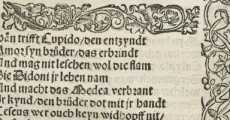 trifft Cupido/den entzyndt
Amor syn brůder/das er brindt
Und mag nit leschen wol die flam
Die Didoni jr leben nam
Und macht das Medea verbrant
Ir kynd/den brůder dot mit jr handt
wer ouch keyn widhopff nit/